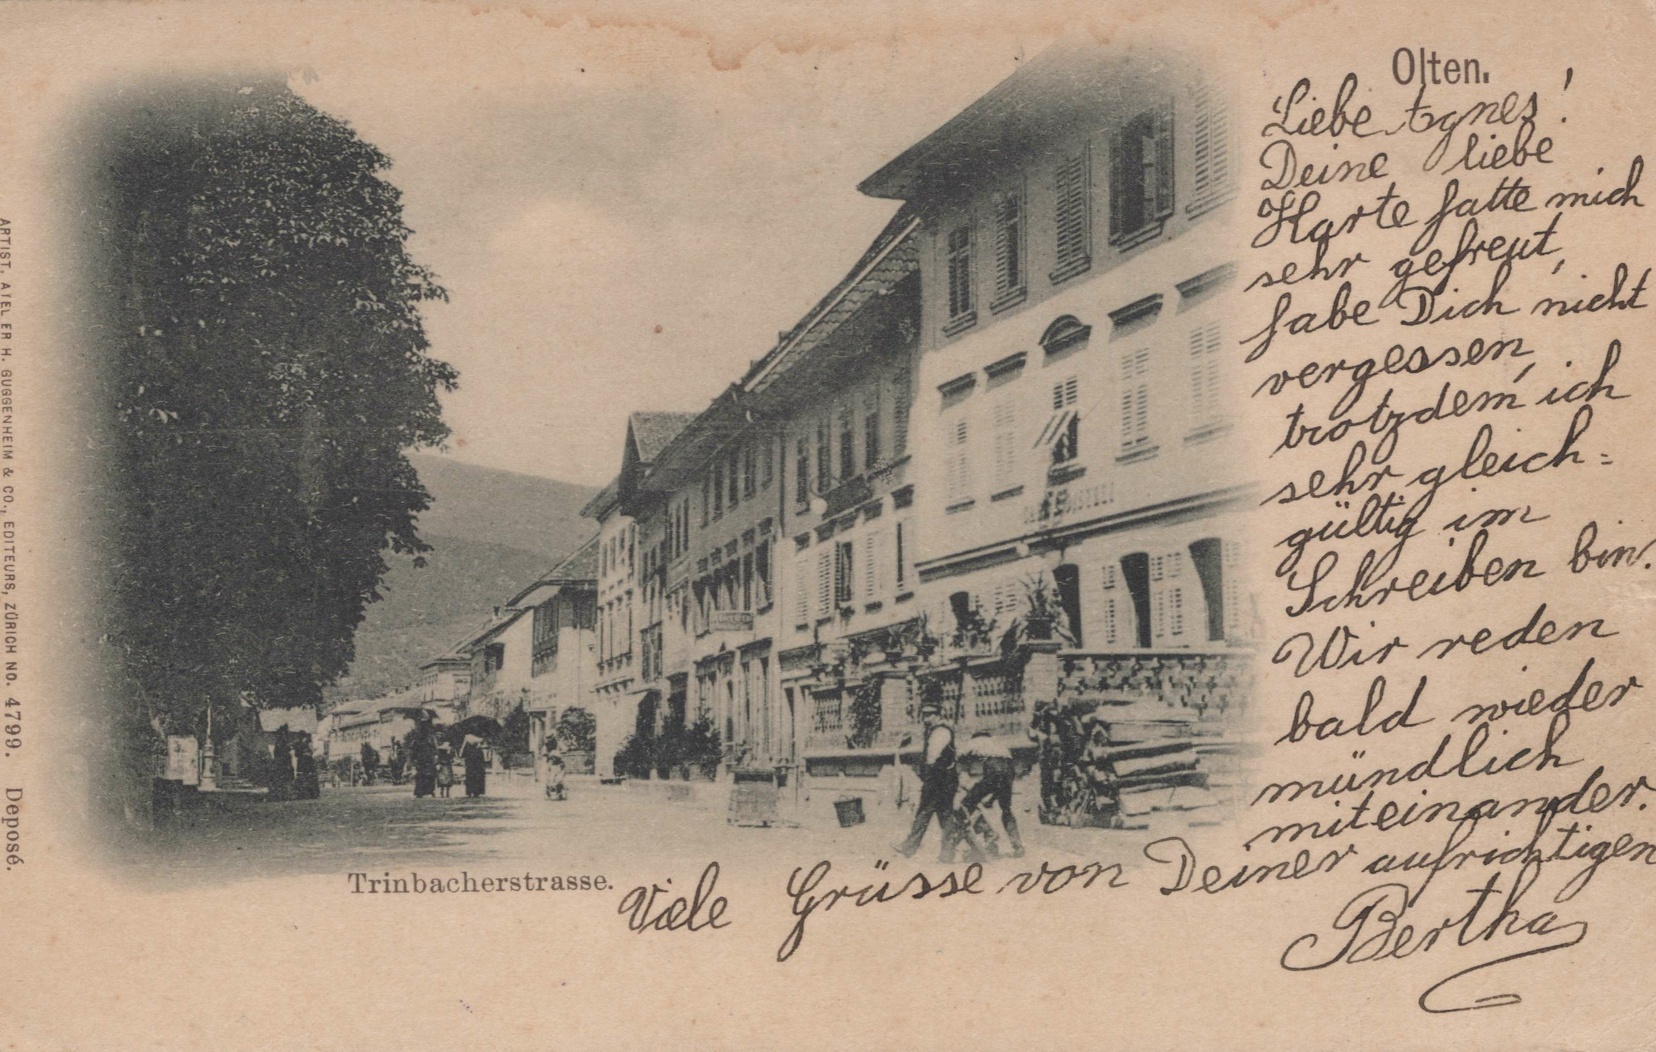 Olten.
Liebe Agnes!
Deine liebe
Karte hatte mich
sehr gefreut,
habe Dich nicht
vergessen,
trotzdem ich
sehr gleich=
gültig im
Schreiben bin.
Wir reden
bald wieder
mündlich
miteinander.
Viele Grüsse von Deiner aufrichtigen
Bertha
Trinbacherstrasse.
ARTIST. ATELIER H. GUGGENHEIM & CO., EDITEURS, ZÜRICH NO. 4799. Deposé.